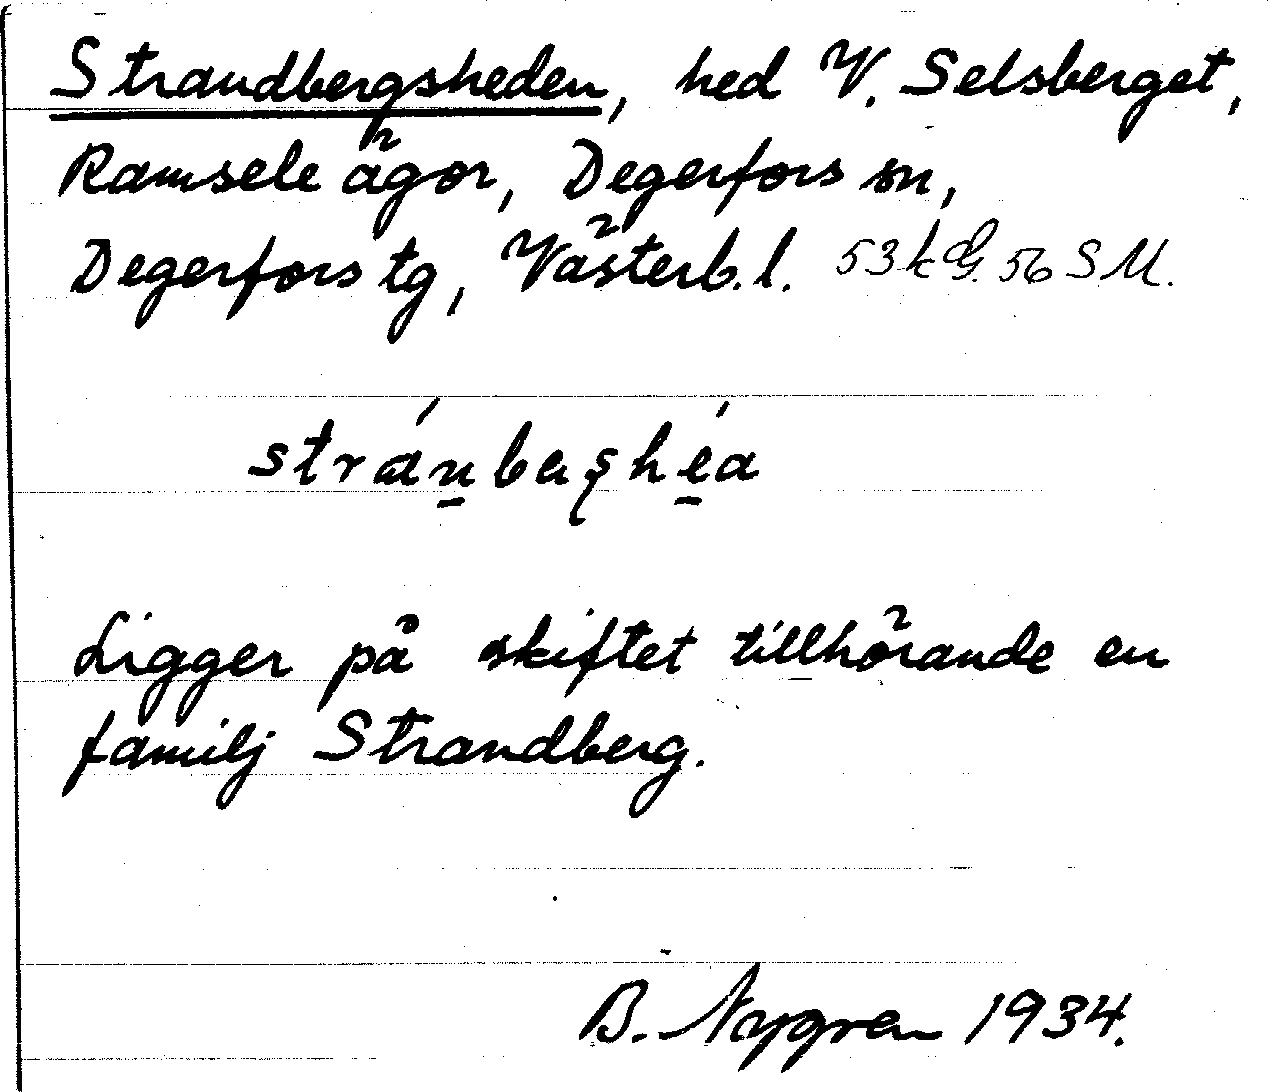 Strandbergsheden, hed V. Selsberget,
Ramsele ägor, Degerfors sn,
Degerfors tg, Västerb. l. 53 k G. 56 SM.
stránbaʂhéa
Ligger på skiftet tillhörande en
familj Strandberg.
B. Nygren 1934.